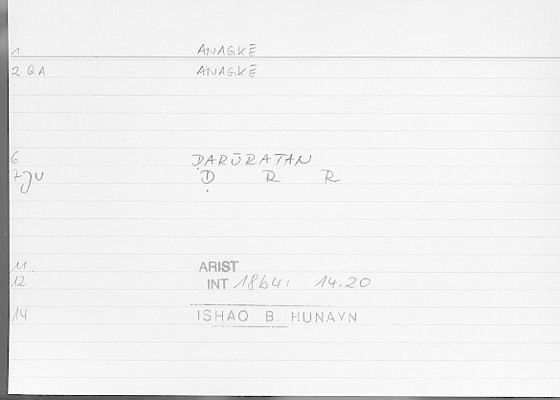 1 ANAGKĒ
2 QA ANAGKĒ
6 ḌARŪRATAN
7 JU Ḍ R R
11 ARIST
12 INT 18b4: 14.20
14 ISHAQ B. HUNAYN